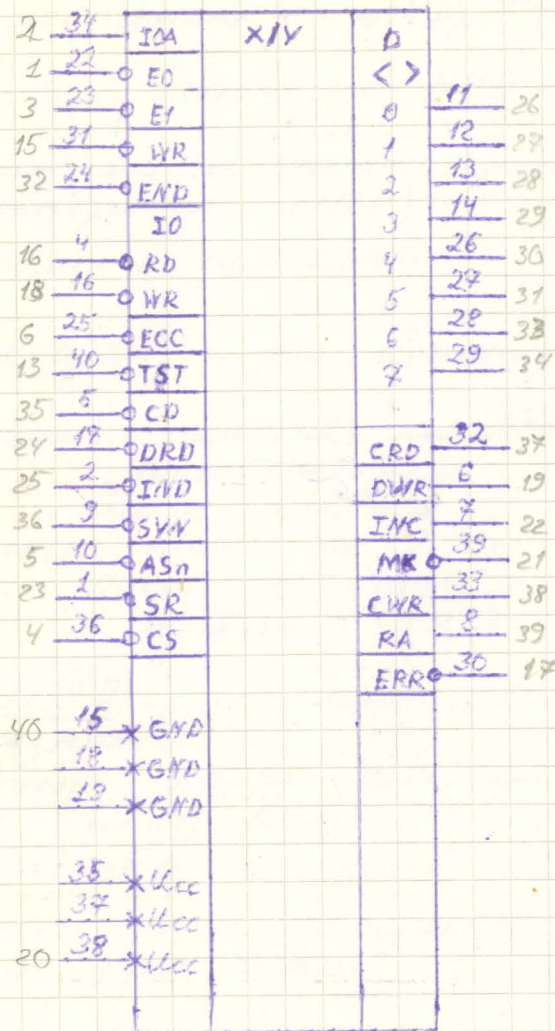 2 34 IOA X/Y D
1 22 E0 < >
3 23 E1 0 11 26
15 31 WR 1 12 27
32 24 END 2 13 28
IO 3 14 29
16 4 RD 4 26 30
18 16 WR 5 27 31
6 25 ECC 6 28 33
13 40 TST 7 29 34
35 5 CD
24 17 DRD CRD 32 37
25 2 IND DWR 6 19
36 9 SYN INC 7 22
5 10 ASn MK 39 21
23 1 SR CWR 33 38
4 36 CS RA 8 39
ERR 30 17
40 15 GND
18 GND
19 GND
35 Ucc
37 Ucc
20 38 Ucc